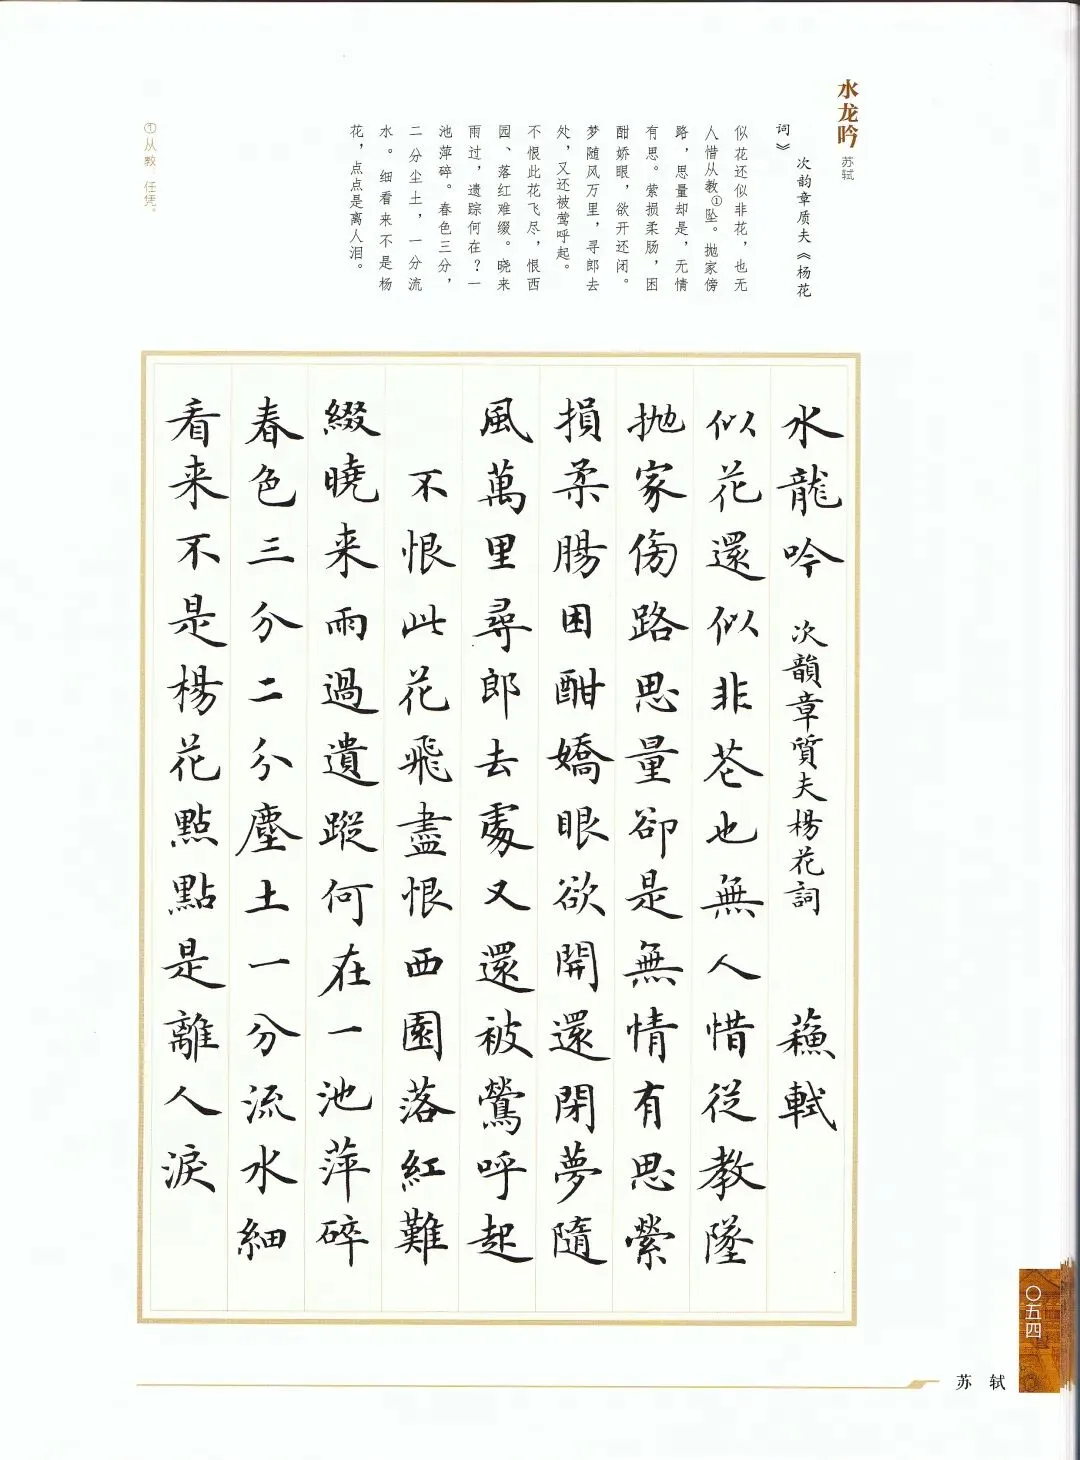 水龙吟 苏轼
次韵章质夫《杨花
词》
似花还似非花，也无
人惜从教①坠。抛家傍
路，思量却是，无情
有思。萦损柔肠，困
酣娇眼，欲开还闭。
梦随风万里，寻郎去
处，又还被莺呼起。
不恨此花飞尽，恨西
园、落红难缀。晓来
雨过，遗踪何在？一
池萍碎。春色三分，
二分尘土，一分流
水。细看来不是杨
花，点点是离人泪。
①从教：任凭。
水龍吟 次韻章質夫楊花詞 蘓軾
似花還似非苍也無人惜從教墜
抛家傍路思量卻是無情有思縈
損柔腸困酣嬌眼欲開還閉夢隨
風萬里尋郎去處又還被鶯呼起
不恨此花飛盡恨西園落紅難
綴曉来雨過遺蹤何在一池萍碎
春色三分二分塵土一分流水細
看来不是楊花點點是離人淚
〇五四
苏 轼